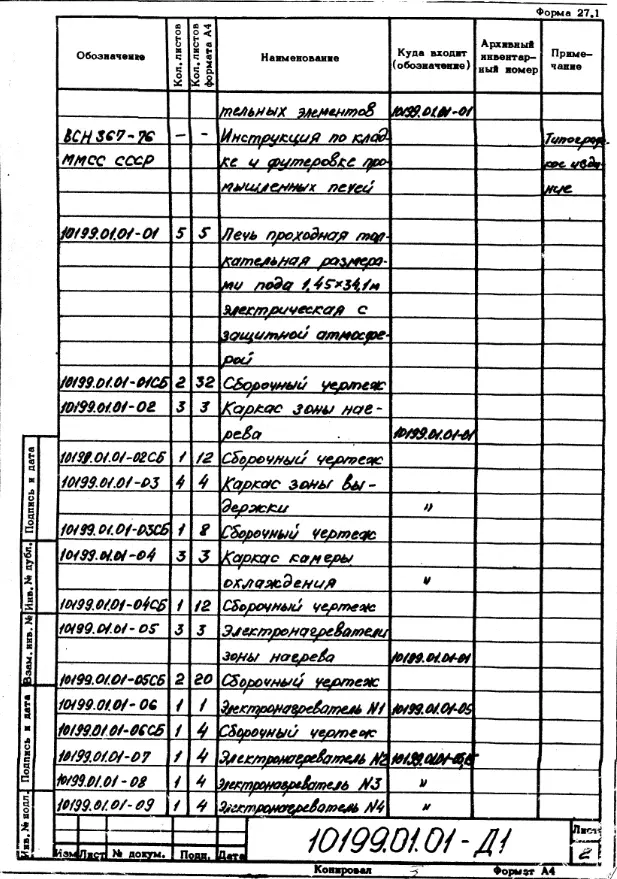 Форма 27.1
Обозначение Кол. листов Кол. листов формата А4 Наименование Куда входит (обозначение) Архивный инвентарный номер Примечание
тельных элементов 10199.01.01-01
ВСН 367-76 — - Инструкция по клад- Типограф-
ММСС СССР ке и футеровке про- ское изда-
мышленных печей ние
10199.01.01-01 5 5 Печь проходная тол-
кательная размера-
ми пода 1,45×34,1м
электрическая с
защитной атмосфе-
рой
10199.01.01-01СБ 2 32 Сборочный чертеж
10199.01.01-02 3 3 Каркас зоны наг-
рева 10199.01.01-01
10199.01.01-02СБ 1 12 Сборочный чертеж
10199.01.01-03 4 4 Каркас зоны вы-
держки "
10199.01.01-03СБ 1 8 Сборочный чертеж
10199.01.01-04 3 3 Каркас камеры
охлаждения "
10199.01.01-04СБ 1 12 Сборочный чертеж
10199.01.01-05 3 3 Электронагреватели
зоны нагрева 10199.01.01-01
10199.01.01-05СБ 2 20 Сборочный чертеж
10199.01.01-06 1 1 Электронагреватель N1 10199.01.01-05
10199.01.01-06СБ 1 4 Сборочный чертеж
10199.01.01-07 1 4 Электронагреватель N2
10199.01.01-08 1 4 Электронагреватель N3 "
10199.01.01-09 1 4 Электронагреватель N4 "
Инв. № подл. Подпись и дата Взам. инв. № Инв. № дубл. Подпись и дата
10199.01.01-Д1
Лист
2
Изм Лист № докум. Подп. Дата
Копировал Формат А4